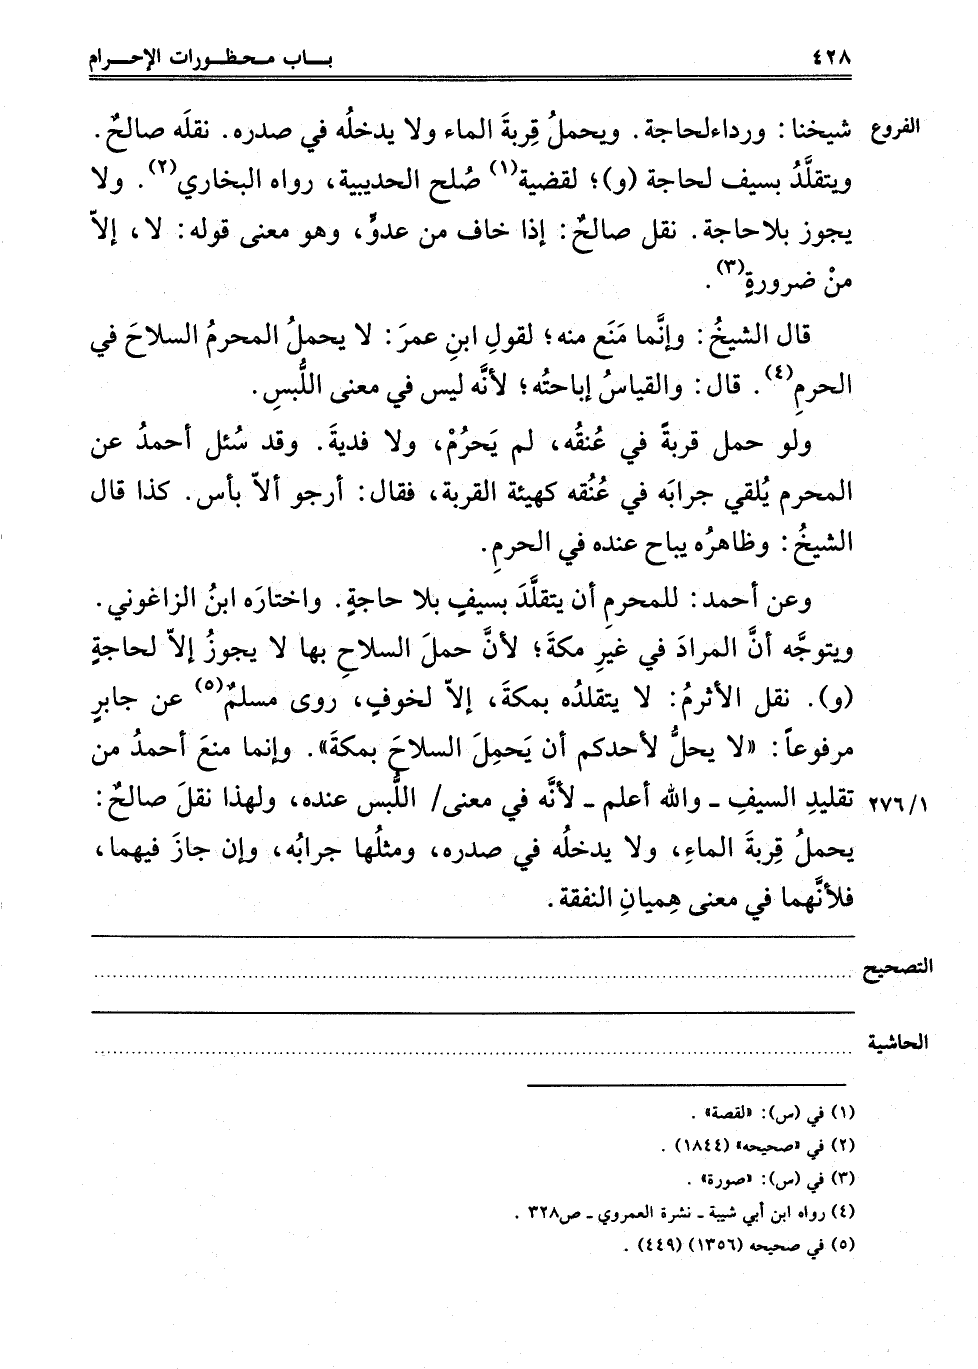 ٤٢٨ بـــاب محـظـورات الإحـــرام
الفروع شيخنا: ورداءلحاجة. ويحملُ قِربةَ الماء ولا يدخلُه في صدره. نقلَه صالحٌ.
ويتقلَّدُ بسيف لحاجة (و)؛ لقضية(١) صُلح الحديبية، رواه البخاري(٢). ولا
يجوز بلاحاجة. نقل صالحٌ: إذا خاف من عدوٍّ، وهو معنى قوله: لا، إلاّ
منْ ضرورةٍ(٣).
قال الشيخُ: وإنَّما مَنَع منه؛ لقولِ ابنِ عمرَ: لا يحملُ المحرمُ السلاحَ في
الحرمِ(٤). قال: والقياسُ إباحتُه؛ لأنَّه ليس في معنى اللُّبسِ.
ولو حمل قربةً في عُنقُه، لم يَحرُمْ، ولا فديةَ. وقد سُئل أحمدُ عن
المحرم يُلقي جرابَه في عُنُقه كهيئة القربة، فقال: أرجو ألاّ بأس. كذا قال
الشيخُ: وظاهرُه يباح عنده في الحرمِ.
وعن أحمد: للمحرمِ أن يتقلَّدَ بسيفٍ بلا حاجةٍ. واختارَه ابنُ الزاغوني.
ويتوجَّه أنَّ المرادَ في غيرِ مكةَ؛ لأنَّ حملَ السلاحِ بها لا يجوزُ إلاّ لحاجةٍ
(و). نقل الأثرمُ: لا يتقلدُه بمكةَ، إلاّ لخوفٍ، روى مسلمٌ(٥) عن جابرٍ
مرفوعاً: «لا يحلُّ لأحدكم أن يَحمِلَ السلاحَ بمكةَ». وإنما منعَ أحمدُ من
٢٧٦/١ تقليدِ السيفِ ـ والله أعلم ـ لأنَّه في معنى/ اللُّبس عنده، ولهذا نقلَ صالحٌ:
يحملُ قِربةَ الماءِ، ولا يدخلُه في صدره، ومثلُها جرابُه، وإن جازَ فيهما،
فلأنَّهما في معنى هِميانِ النفقة.
التصحيح
الحاشية
(١) في (س): «لقصة».
(٢) في «صحيحه» (١٨٤٤).
(٣) في (س): «صورة».
(٤) رواه ابن أبي شيبة ـ نشرة العمروي ـ ص٣٢٨.
(٥) في صحيحه (١٣٥٦) (٤٤٩).